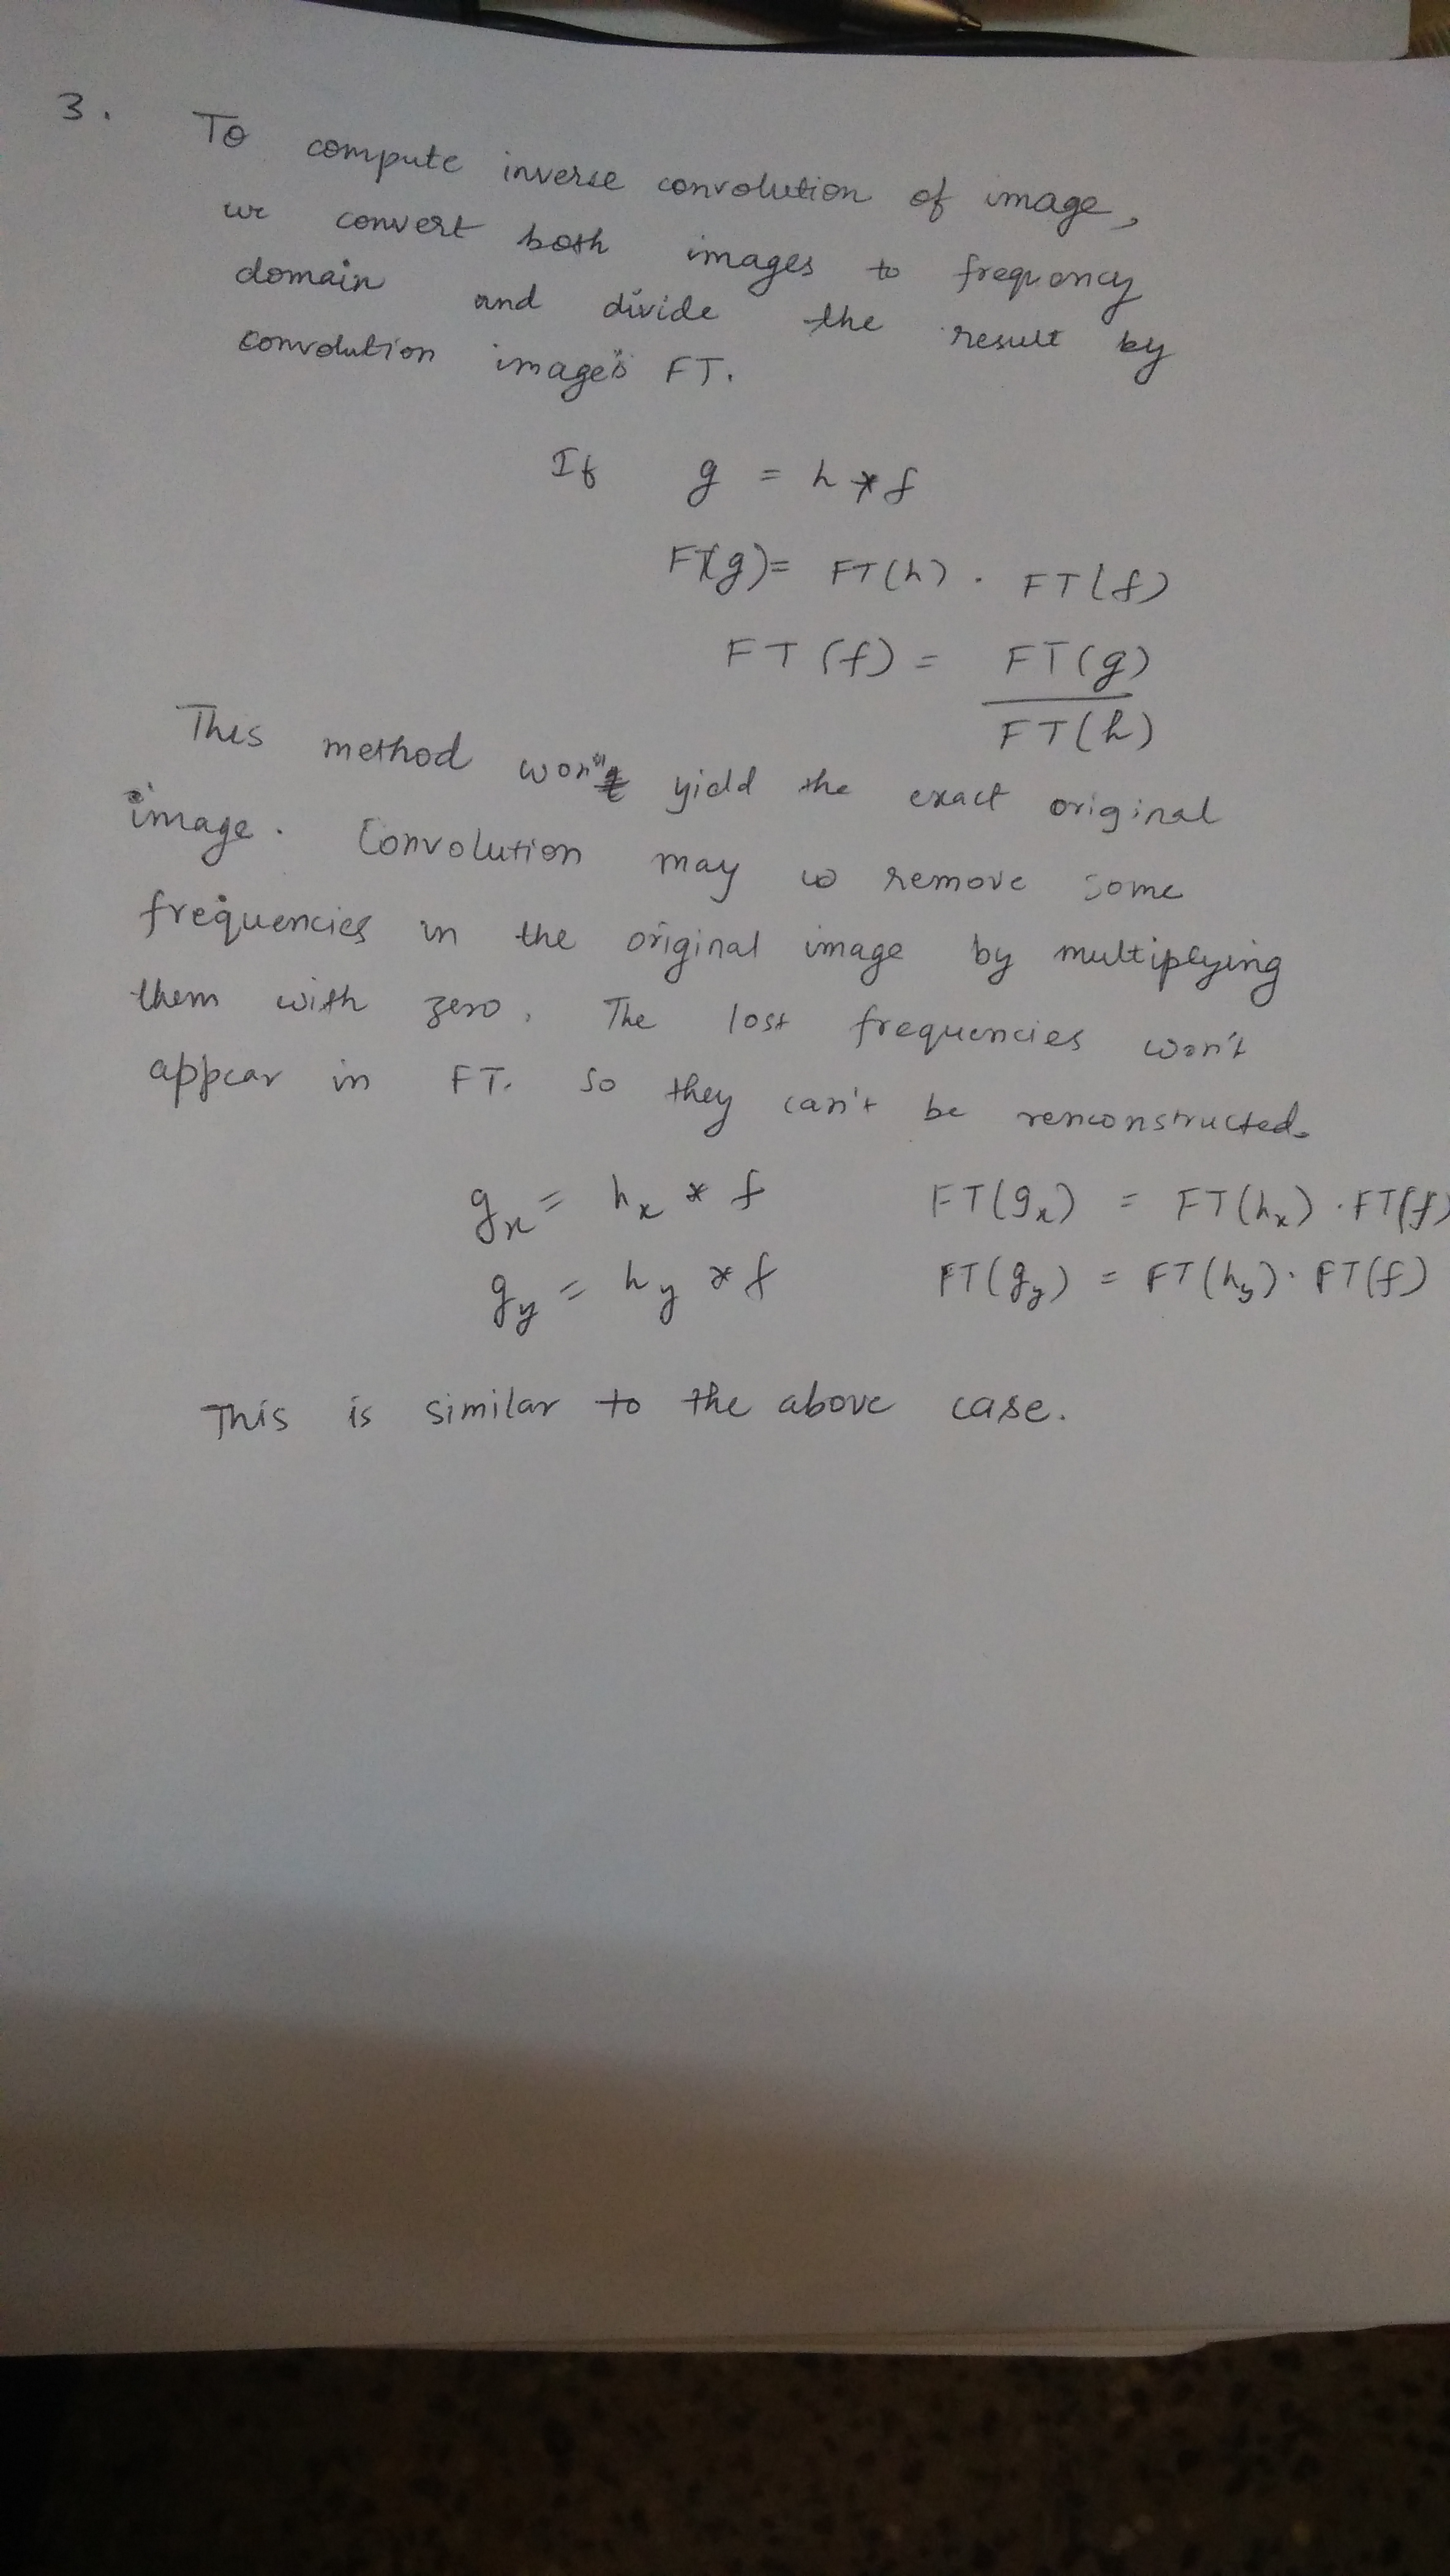 3. To compute inverse convolution of image,
we convert both images to frequency
domain and divide the result by
convolution image's FT.
If g = h * f
FT(g) = FT(h) . FT(f)
FT (f) = FT(g)
FT(h)
This method won't yield the exact original
image. Convolution may remove some
frequencies in the original image by multiplying
them with zero. The lost frequencies won't
appear in FT. So they can't be renconstructed.
gx = hx * f FT(gx) = FT(hx) . FT(f)
gy = hy * f FT(gy) = FT(hy) . FT(f)
This is similar to the above case.